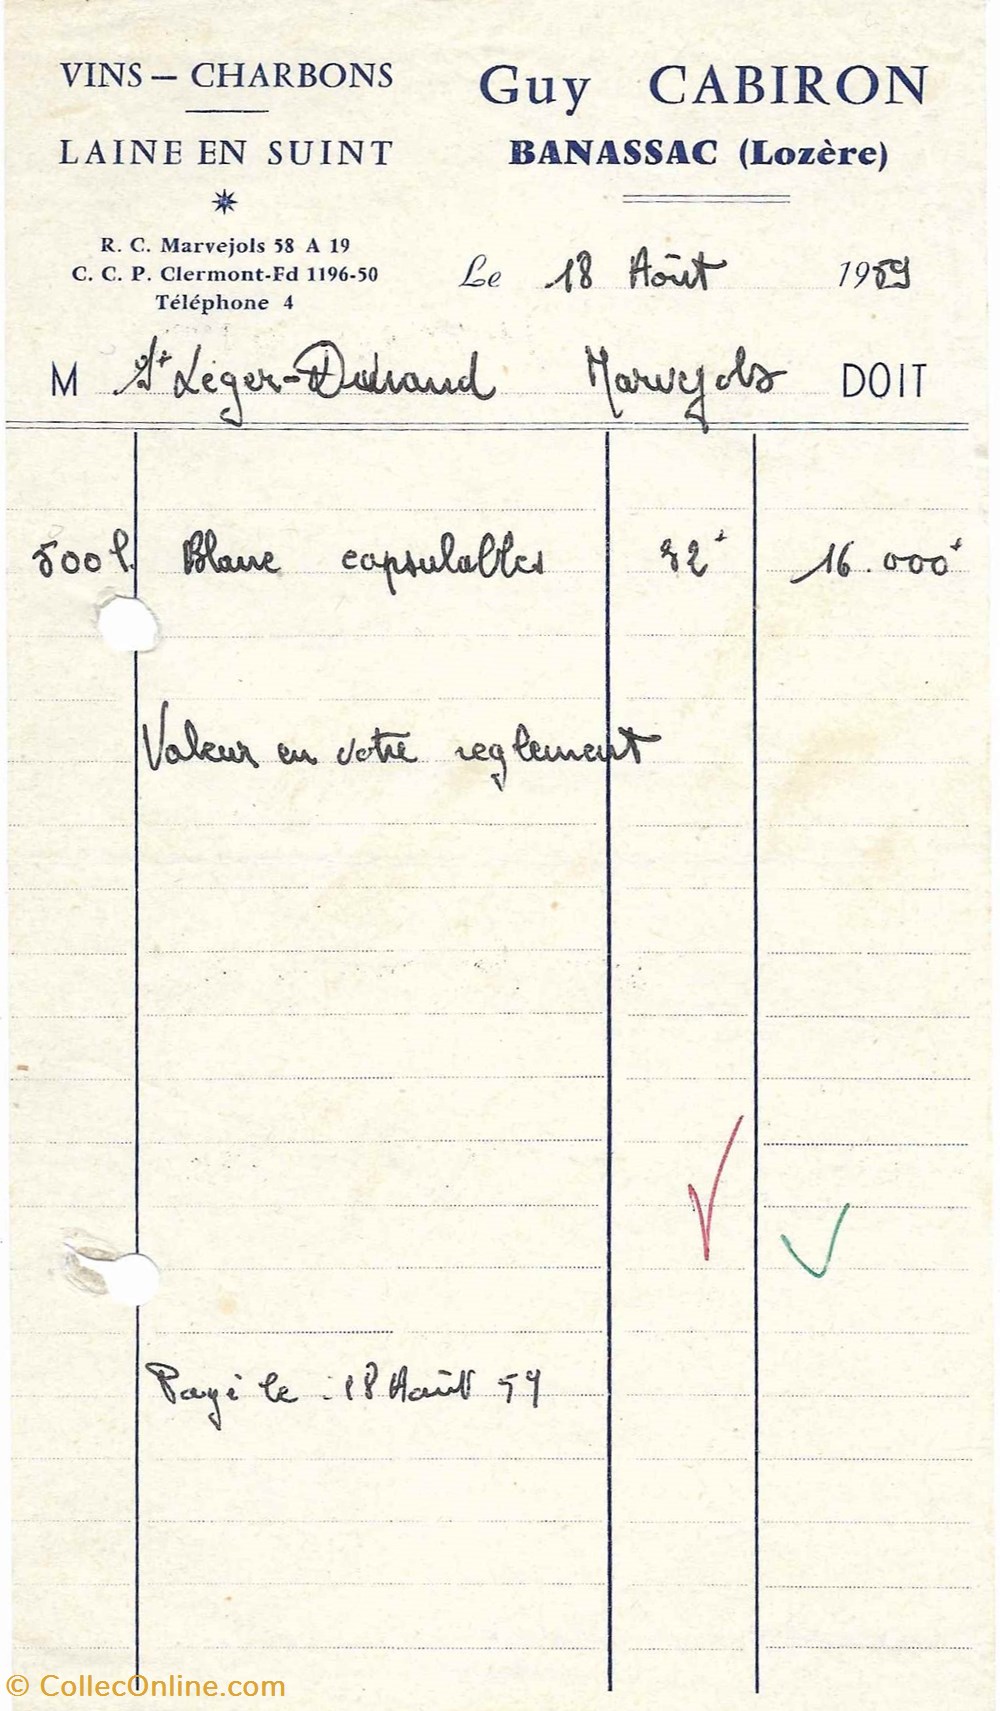 VINS — CHARBONS
LAINE EN SUINT
R. C. Marvejols 58 A 19
C. C. P. Clermont-Fd 1196-50
Téléphone 4
Guy CABIRON
BANASSAC (Lozère)
Le 18 Août 1959
M St Léger-Durand Marvejols DOIT
500 l. Blanc capsulables 32 16.000
Valeur en votre reglement
Payé le 18 Août 59
© CollecOnline.com